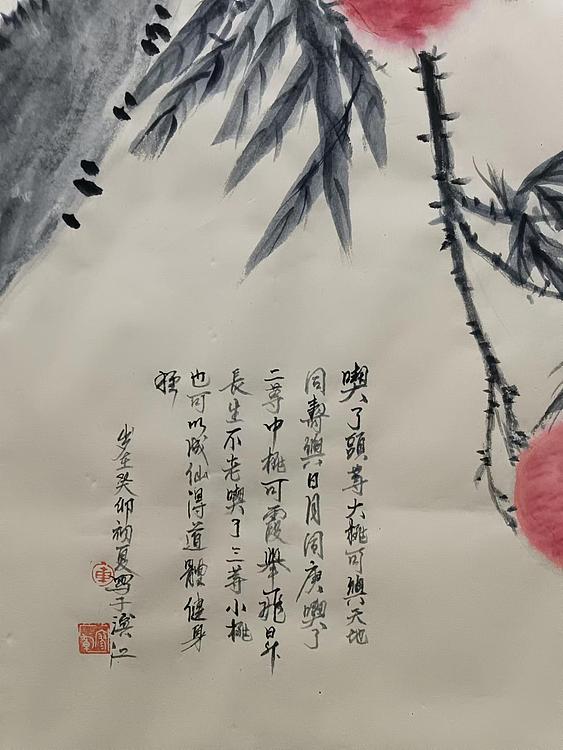 喫了頭等大桃可與天地
同壽與日月同庚喫了
二等中桃可霞舉飛昇
長生不老喫了三等小桃
也可以成仙得道體健身
輕
岁在癸卯初夏寫于濱江